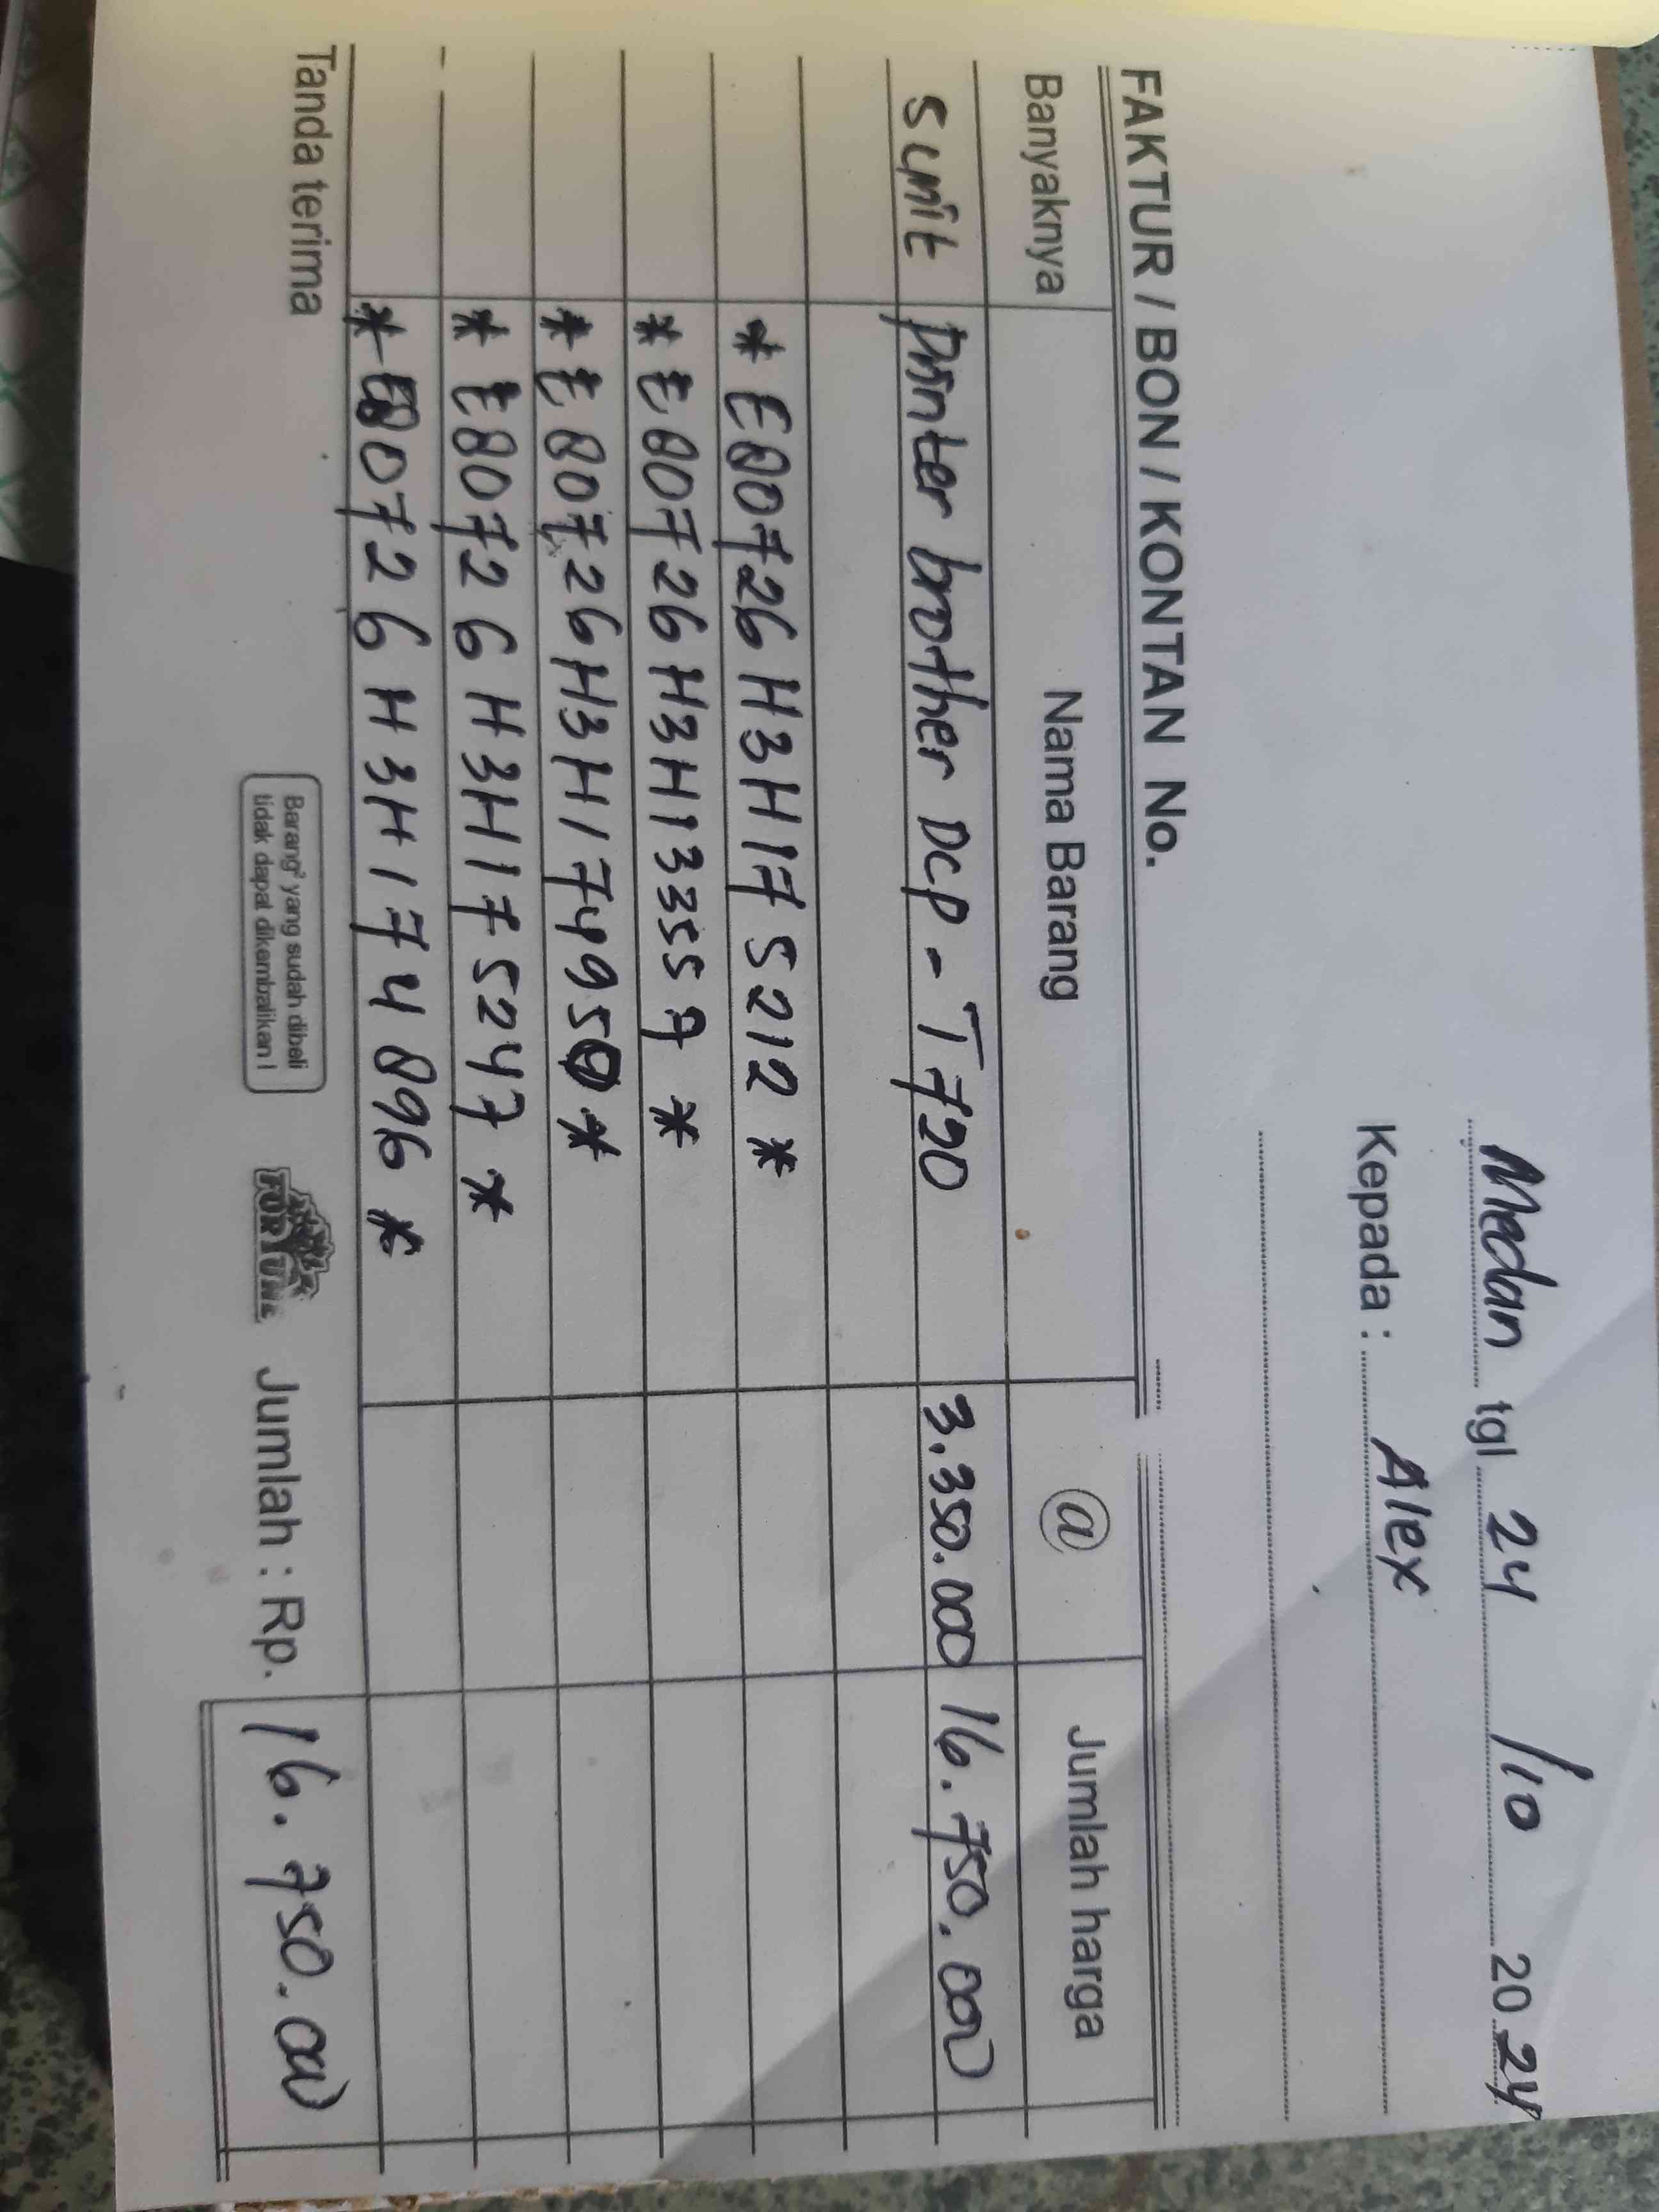 Medan tgl 24 /10 2024
Kepada : Alex
FAKTUR / BON / KONTAN No.
Banyaknya Nama Barang @ Jumlah harga
5 unit Printer brother DCP - T720 3.350.000 16.750.000
* E80726H3H175212 *
* E80726H3H133557 *
* E80726H3H174950 *
* E80726H3H175247 *
* E80726H3H174896 *
Tanda terima
Barang² yang sudah dibeli
tidak dapat dikembalikan !
FORTUNE
Jumlah : Rp. 16.750.000